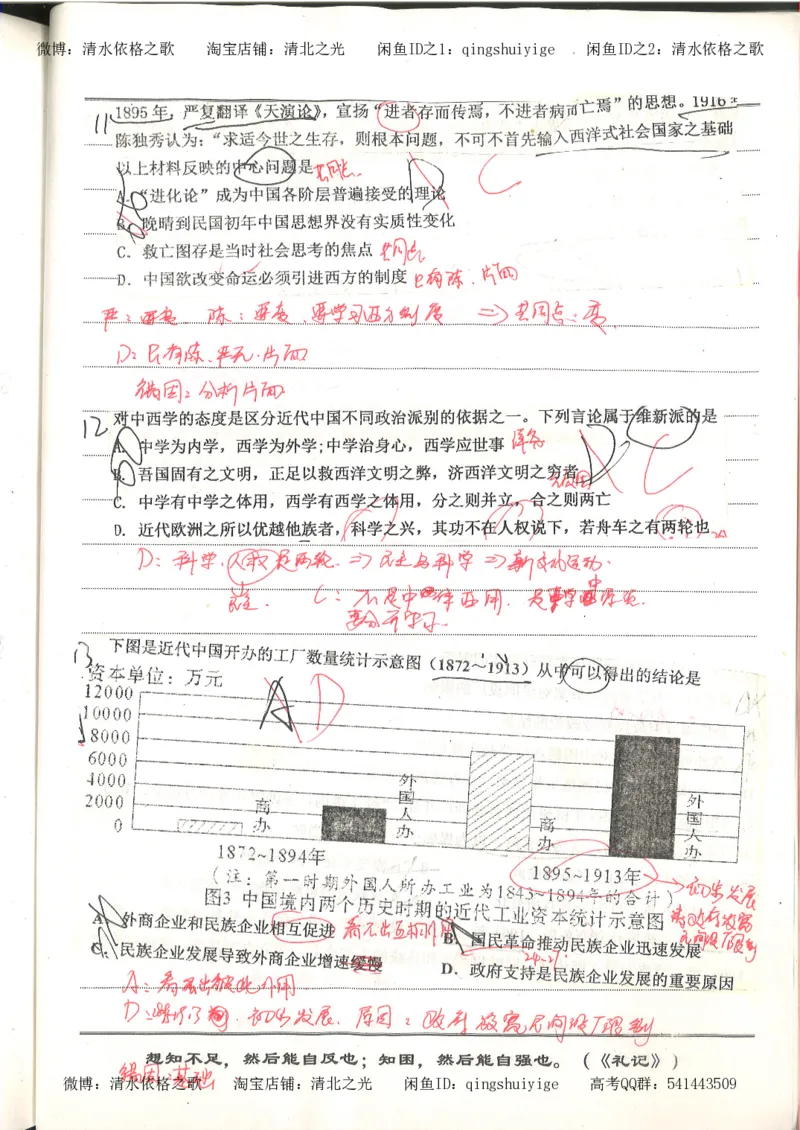 微博：清水依格之歌 淘宝店铺：清北之光 闲鱼ID之1：qingshuiyige 闲鱼ID之2：清水依格之歌
11 1895年，严复翻译《天演论》，宣扬“进者存而传焉，不进者病而亡焉”的思想。1916年
陈独秀认为：“求适今世之生存，则根本问题，不可不首先输入西洋式社会国家之基础
以上材料反映的中心问题是 共同点 D C
A. “进化论”成为中国各阶层普遍接受的理论
B. 晚晴到民国初年中国思想界没有实质性变化
C. 救亡图存是当时社会思考的焦点 共同点
D. 中国欲改变命运必须引进西方的制度 只有陈．片面
严：要变 陈：要变、要学习西方制度 => 共同点：变
D：只有陈、严无．片面
错因：分析片面
12 对中西学的态度是区分近代中国不同政治派别的依据之一。下列言论属于维新派的是
A. 中学为内学，西学为外学；中学治身心，西学应世事 洋务
B. 吾国固有之文明，正足以救西洋文明之弊，济西洋文明之穷者 D C
C. 中学有中学之体用，西学有西学之体用，分之则并立，合之则两亡
D. 近代欧洲之所以优越他族者，科学之兴，其功不在人权说下，若舟车之有两轮也
D：科学．人权是两轮 => 民主与科学 => 新文化运动．
13 下图是近代中国开办的工厂数量统计示意图（1872～1913）从中可以得出的结论是
资本单位：万元
A D
12000
10000
8000
6000
4000
2000
0
商办
外国人办
商办
外国人办
1872~1894年
1895~1913年 初步发展
（注：第一时期外国人所办工业为1843~1894年的合计）
图3 中国境内两个历史时期的近代工业资本统计示意图
清政府放宽民间设厂限制
A. 外商企业和民族企业相互促进 看不出互相作用
B. 国民革命推动民族企业迅速发展
24-27
C. 民族企业发展导致外商企业增速缓慢
D. 政府支持是民族企业发展的重要原因
A：看不出彼此作用
初步发展．原因：政府放宽民间设厂限制
想知不足，然后能自反也；知困，然后能自强也。（《礼记》）
错因：基础
微博：清水依格之歌 淘宝店铺：清北之光 闲鱼ID：qingshuiyige 高考QQ群：541443509